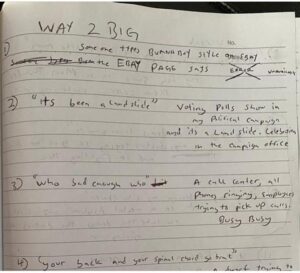 WAY 2 BIG
NO.
1) Some one types BURNABOY STYLE on EBAY
Then the EBAY PAGE says ERROR
2) "Its been a landslide" Voting Polls show in
my Political Campaign
and its a Landslide. Celebrate
in the campaign office
3) "Who sad enough who" A call center, all
Phones ringing, employees
trying to pick up calls.
Busy Busy
4) "your back and your spinal chord go brat"
trying to